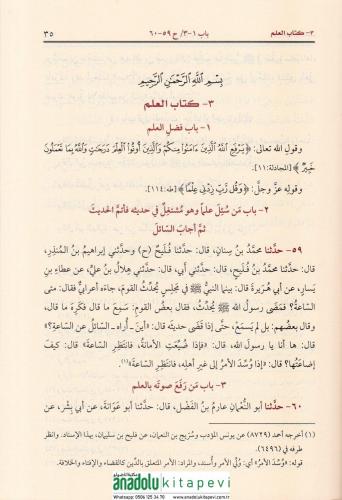 ٣- كتاب العلم
باب ١-٣/ ح ٥٩-٦٠
٣٥
بِسْمِ اللَّهِ الرَّحْمَنِ الرَّحِيمِ
٣- كتاب العلم
١- باب فضل العلم
وقول الله تعالى: ﴿يَرْفَعِ اللَّهُ الَّذِينَ ءَامَنُوا مِنكُمْ وَالَّذِينَ أُوتُوا الْعِلْمَ دَرَجَاتٍ وَاللَّهُ بِمَا تَعْمَلُونَ
خَبِيرٌ﴾ [المجادلة: ١١].
وقوله عزَّ وجلَّ: ﴿وَقُل رَّبِّ زِدْنِي عِلْمًا﴾ [طه: ١١٤].
٢- باب مَن سُئِلَ علماً وهو مُشتغِلٌ في حديثه فأتمَّ الحديثَ
ثمَّ أجاب السّائلَ
٥٩- حدَّثنا محمَّدُ بنُ سِنانٍ، قال: حدَّثنا فُلَيحٌ (ح) وحدَّثني إبراهيمُ بنُ المُنذِر،
قال: حدَّثنا محمَّدُ بنُ فُلَيحٍ، قال: حدَّثني أبي، قال: حدَّثني هلالُ بنُ عليٍّ، عن عطاءِ بنِ
يَسارٍ، عن أبي هُرَيرةَ قال: بينما النبيُّ ﷺ في مجلِسٍ يُحدِّثُ القومَ، جاءه أعرابيٌّ فقال: متى
السّاعةُ؟ فمَضَى رسولُ الله ﷺ يُحدِّثُ، فقال بعضُ القوم: سَمِعَ ما قال فكَرِهَ ما قال،
وقال بعضُهم: بل لم يَسمَعْ، حتَّى إذا قَضَى حديثَه قال: «أينَ - أُراه - السّائلُ عن السّاعةِ؟»
قال: ها أنا يا رسولَ الله، قال: «فإذا ضُيِّعَتِ الأمانةُ، فانتَظِرِ السّاعةَ» قال: كيفَ
إضاعَتُها؟ قال: «إذا وُسِّدَ الأمرُ إلى غيرِ أهلِه، فانتَظِرِ السّاعةَ»(١).
٣- باب مَن رَفَعَ صوتَه بالعلم
٦٠- حدَّثنا أبو النُّعمانِ عارِمُ بنُ الفَضْل، قال: حدَّثنا أبو عَوانةَ، عن أبي بِشْر، عن
(١) أخرجه أحمد (٨٧٢٩) عن يونس المؤدب وسُرَيج بن النعمان، عن فليح بن سليمان، بهذا الإسناد. وانظر
طرفه في (٦٤٩٦).
قوله: «وُسِّدَ الأمرُ» أي: وُلِّي الأمر وأُسند، والمراد: الأمر المتعلق بالدين كالقضاء والإفتاء والخلافة.
anadolukitapevi
Whatsapp: 0506 125 34 70
www.anadolukitapevi.com